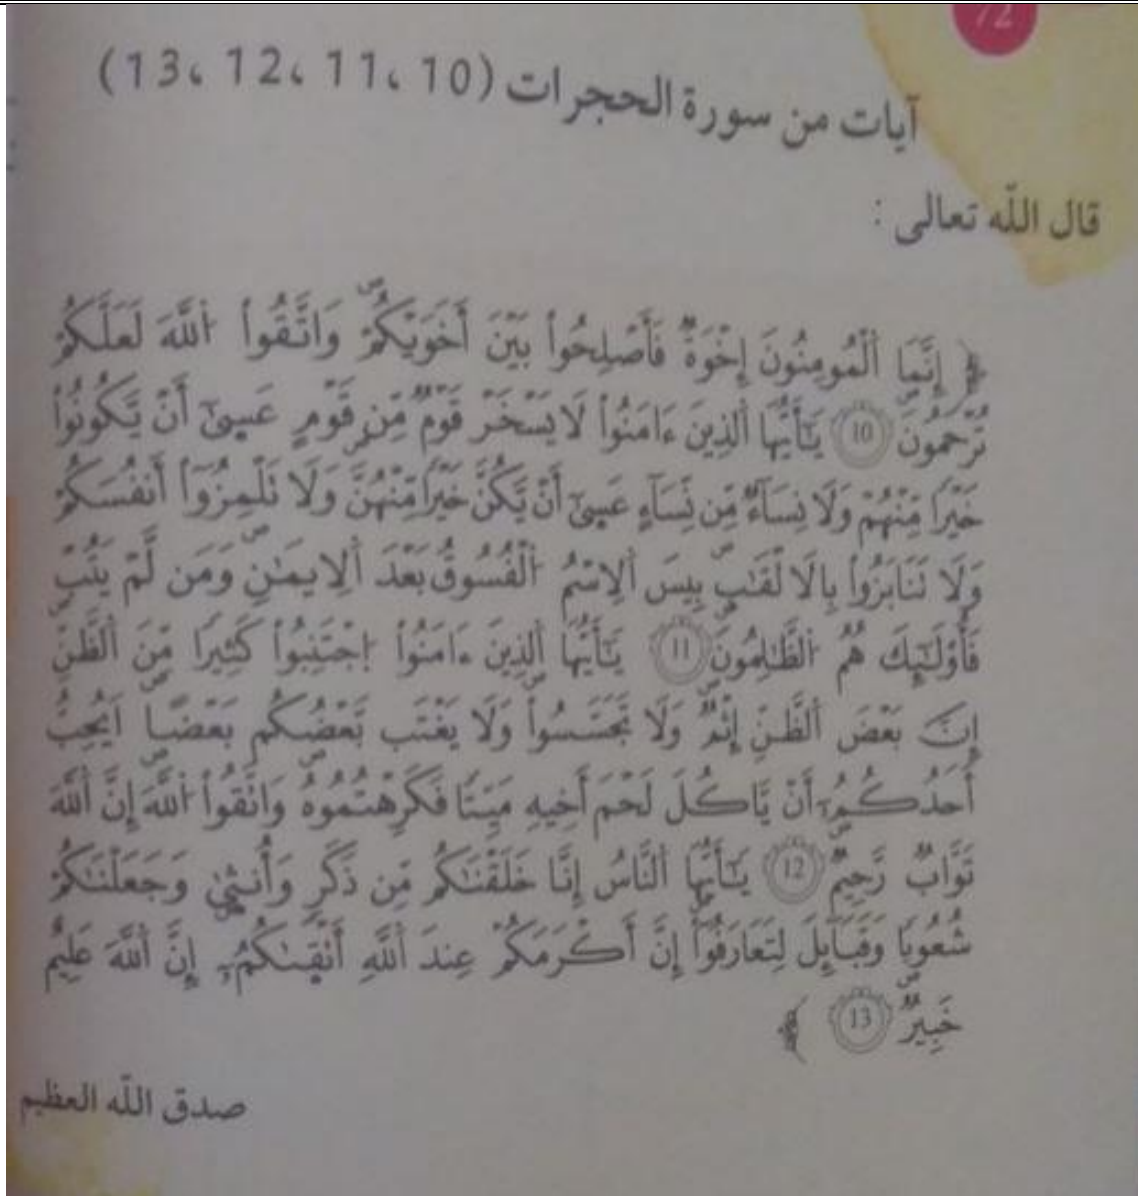 72
آيات من سورة الحجرات (10، 11، 12، 13)
قال اللّه تعالى :
﴿ إِنَّمَا اَ۬لْمُومِنُونَ إِخْوَةٞ فَأَصْلِحُواْ بَيْنَ أَخَوَيْكُمْۖ وَاتَّقُواْ اُ۬للَّهَ لَعَلَّكُمْ
تُرْحَمُونَۖ 10 يَٰٓأَيُّهَا اَ۬لذِينَ ءَامَنُواْ لَا يَسْخَرْ قَوْمٞ مِّن قَوْمٍ عَس۪يٰٓ أَنْ يَّكُونُواْ
خَيْراٗ مِّنْهُمْ وَلَا نِسَآءٞ مِّن نِّسَآءٍ عَس۪يٰٓ أَنْ يَّكُنَّ خَيْراٗ مِّنْهُنَّۖ وَلَا تَلْمِزُوٓاْ أَنفُسَكُمْ
وَلَا تَنَابَزُواْ بِالَالْقَٰبِۖ بِيسَ اَ۬لِاسْمُ اُ۬لْفُسُوقُ بَعْدَ اَ۬لِايمَٰنِۖ وَمَن لَّمْ يَتُبْ
فَأُوْلَٰٓئِكَ هُمُ اُ۬لظَّٰلِمُونَۖ 11 يَٰٓأَيُّهَا اَ۬لذِينَ ءَامَنُواْ اُ۪جْتَنِبُواْ كَثِيراٗ مِّنَ اَ۬لظَّنِّ
إِنَّ بَعْضَ اَ۬لظَّنِّ إِثْمٞۖ وَلَا تَجَسَّسُواْۖ وَلَا يَغْتَب بَّعْضُكُم بَعْضاًۖ اَيُحِبُّ
أَحَدُكُمُۥٓ أَنْ يَّاكُلَ لَحْمَ أَخِيهِ مَيِّتاٗ فَكَرِهْتُمُوهُۖ وَاتَّقُواْ اُ۬للَّهَۖ إِنَّ اَ۬للَّهَ
تَوَّابٞ رَّحِيمٞۖ 12 يَٰٓأَيُّهَا اَ۬لنَّاسُ إِنَّا خَلَقْنَٰكُم مِّن ذَكَرٖ وَأُنث۪يٰ وَجَعَلْنَٰكُمْ
شُعُوباٗ وَقَبَآئِلَ لِتَعَارَفُوٓاْۖ إِنَّ أَكْرَمَكُمْ عِندَ اَ۬للَّهِ أَتْق۪يٰكُمُۥٓۖ إِنَّ اَ۬للَّهَ عَلِيمٌ
خَبِيرٞۖ 13 ﴾
صدق اللّه العظيم